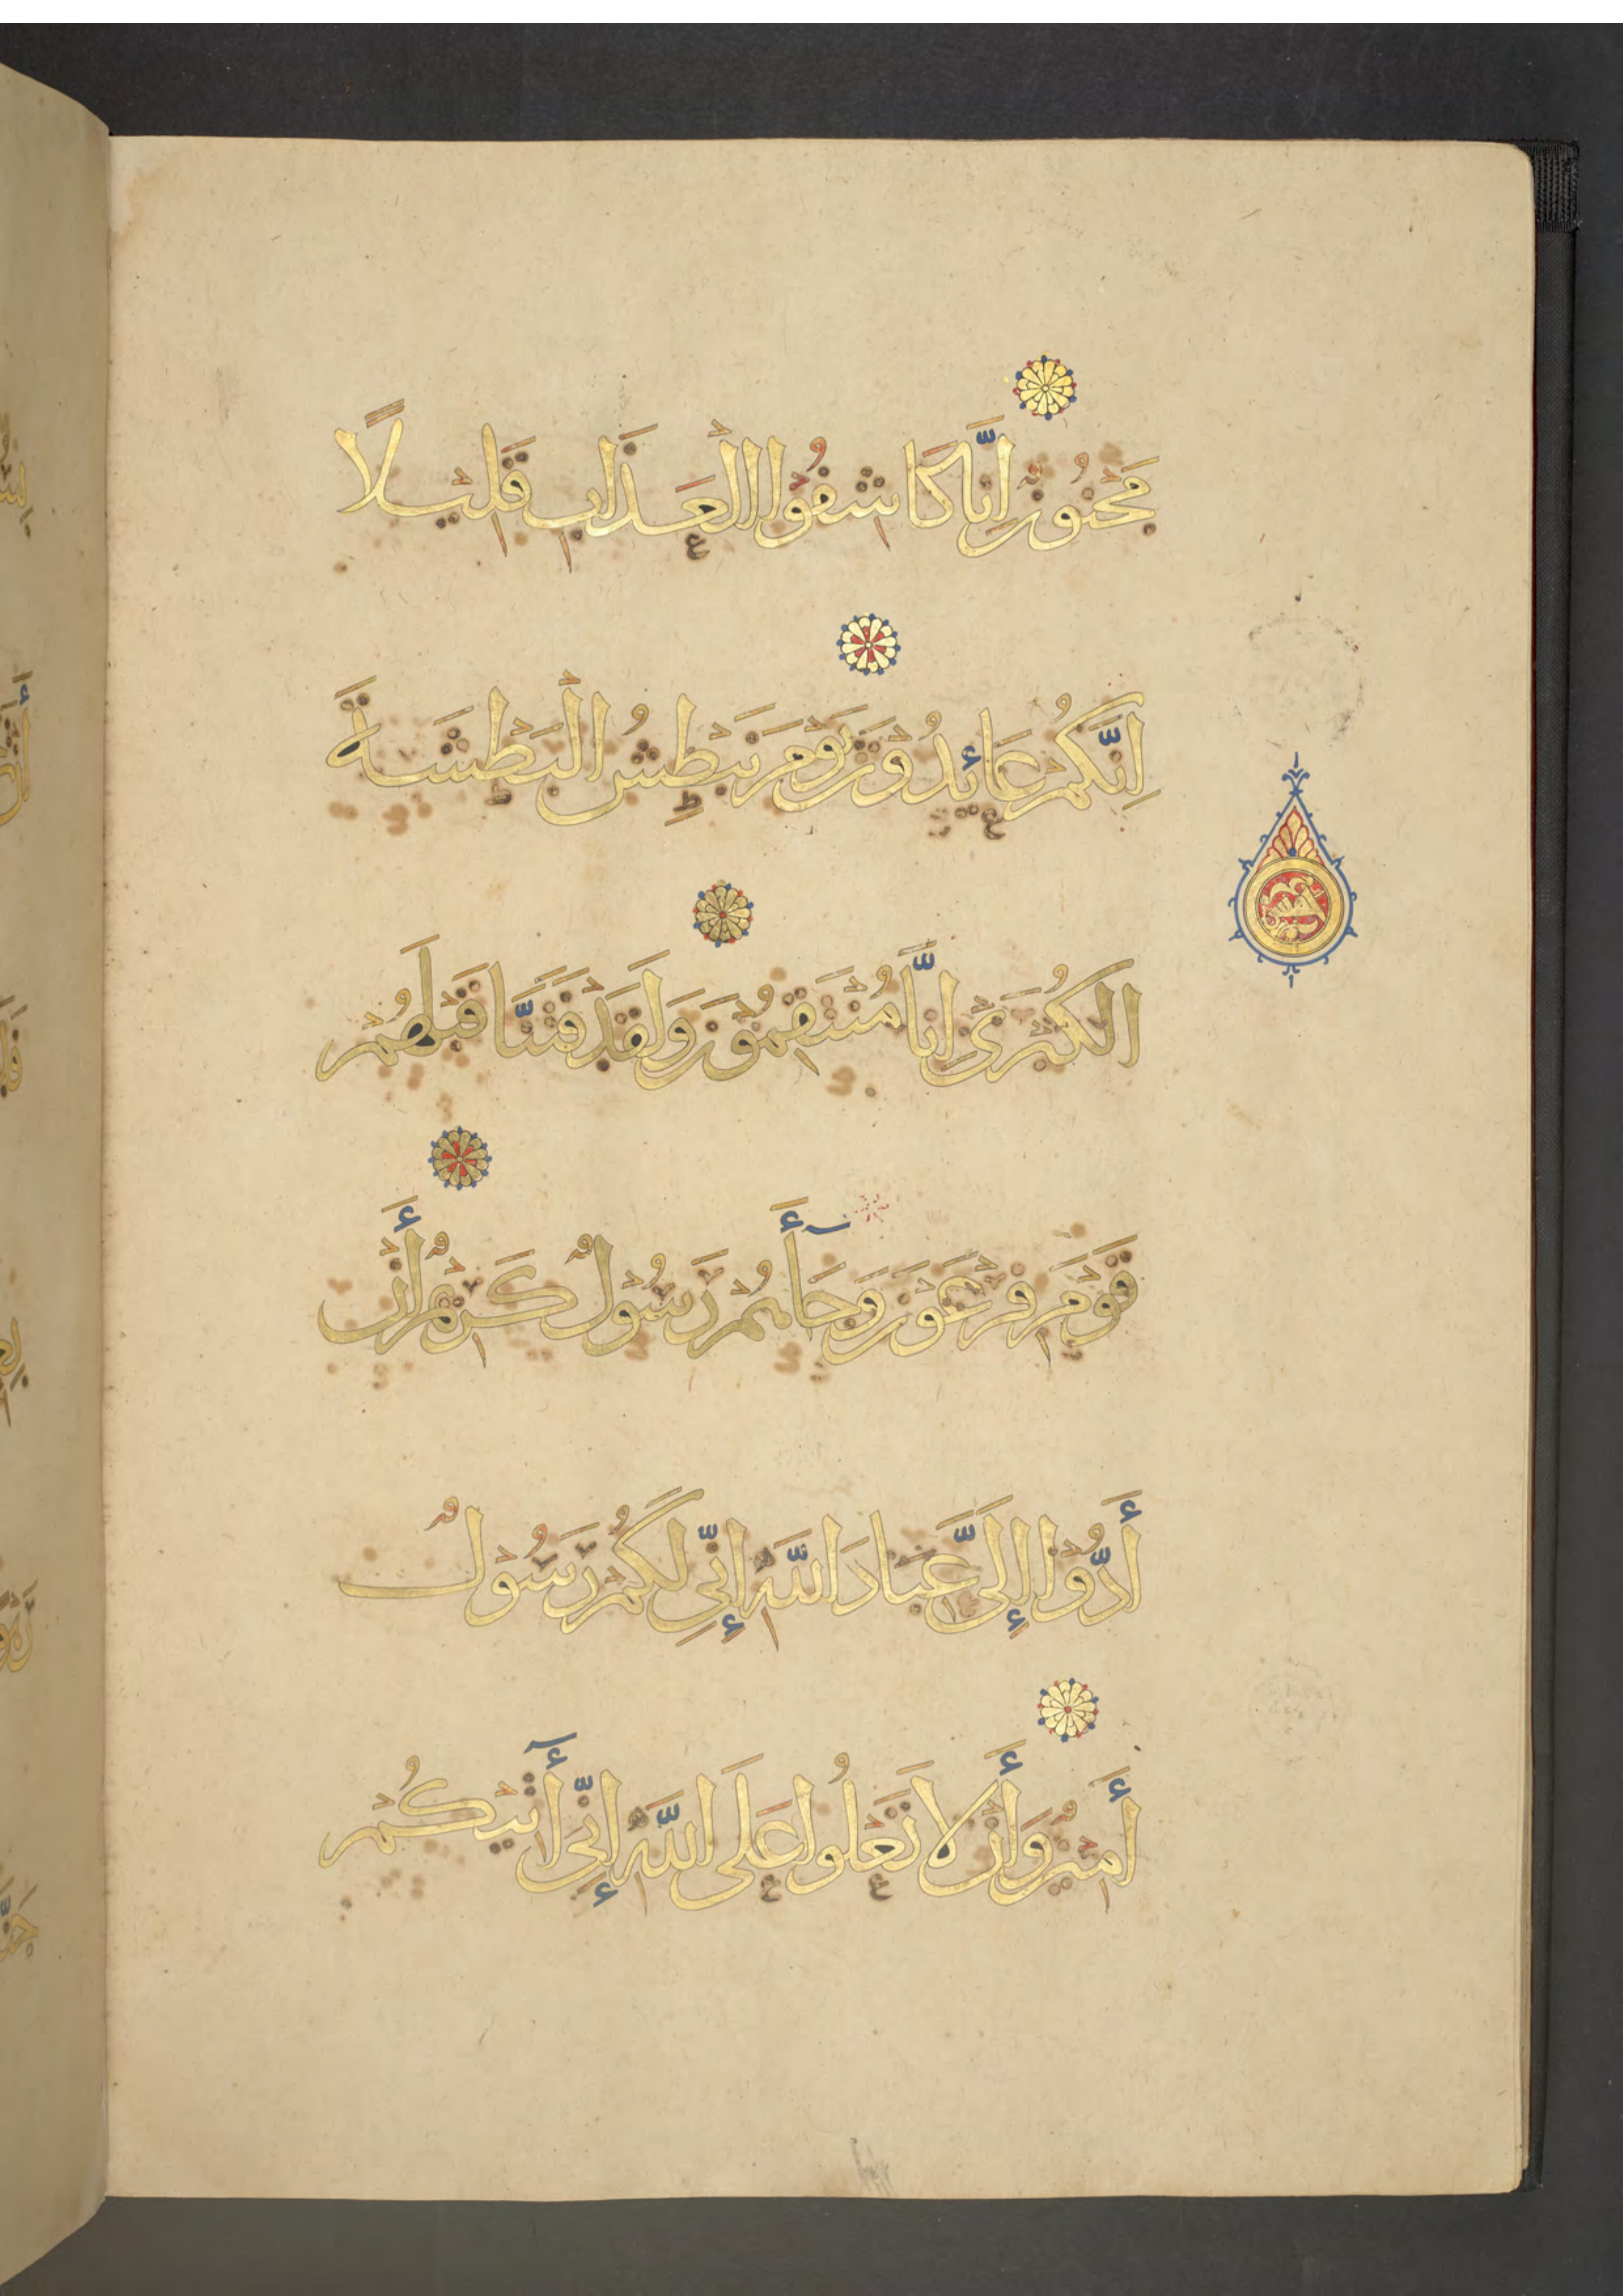 مَجْنُونٌ إِنَّا كَاشِفُوا الْعَذَابِ قَلِيلًا
إِنَّكُمْ عَائِدُونَ يَوْمَ نَبْطِشُ الْبَطْشَةَ
الْكُبْرَى إِنَّا مُنْتَقِمُونَ وَلَقَدْ فَتَنَّا قَبْلَهُمْ
قَوْمَ فِرْعَوْنَ وَجَآءَهُمْ رَسُولٌ كَرِيمٌ أَنْ
أَدُّوا إِلَيَّ عِبَادَ اللَّهِ إِنِّي لَكُمْ رَسُولٌ
أَمِينٌ وَأَنْ لَا تَعْلُوا عَلَى اللَّهِ إِنِّي آتِيكُمْ